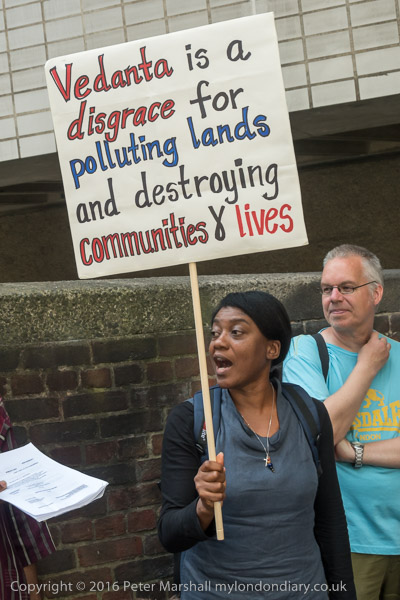 Vedanta is a
disgrace for
polluting lands
and destroying
communities & lives
SDALE
Copyright © 2016 Peter Marshall mylondondiary.co.uk